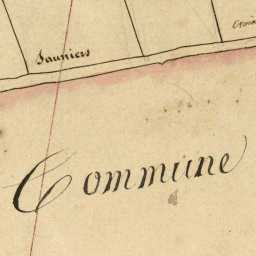 Sauniers
Commune